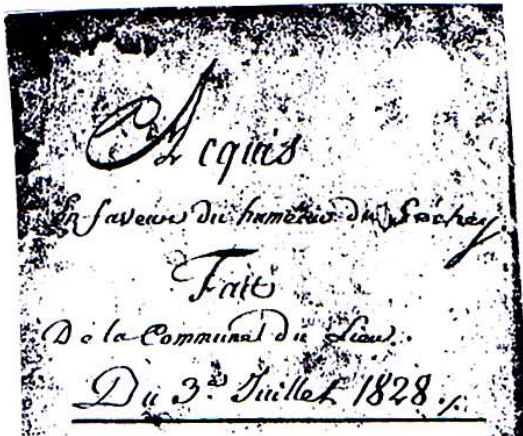 Acquis
En faveur du hameau du Séchey
Fait
De la Commune du Lieu.
Du 3.e Juillet 1828./.